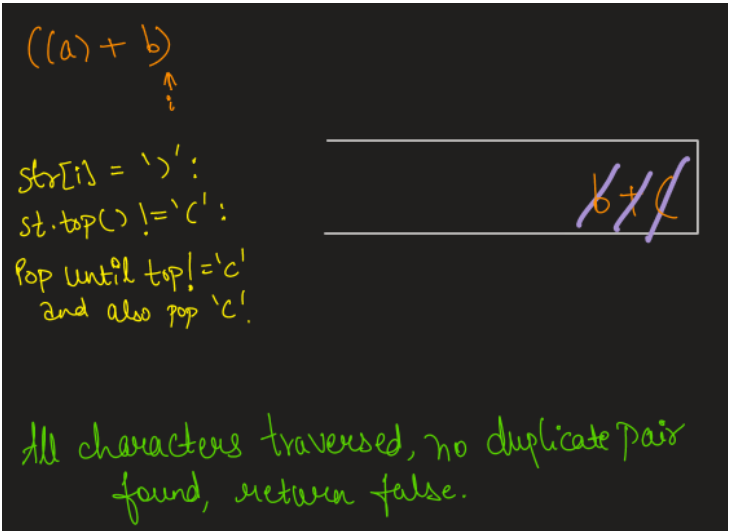 ((a) + b)
i
str[i] = ')':
st.top() != '(':
Pop until top != '('
and also pop '('.
b + (
All characters traversed, no duplicate pair
found, return false.